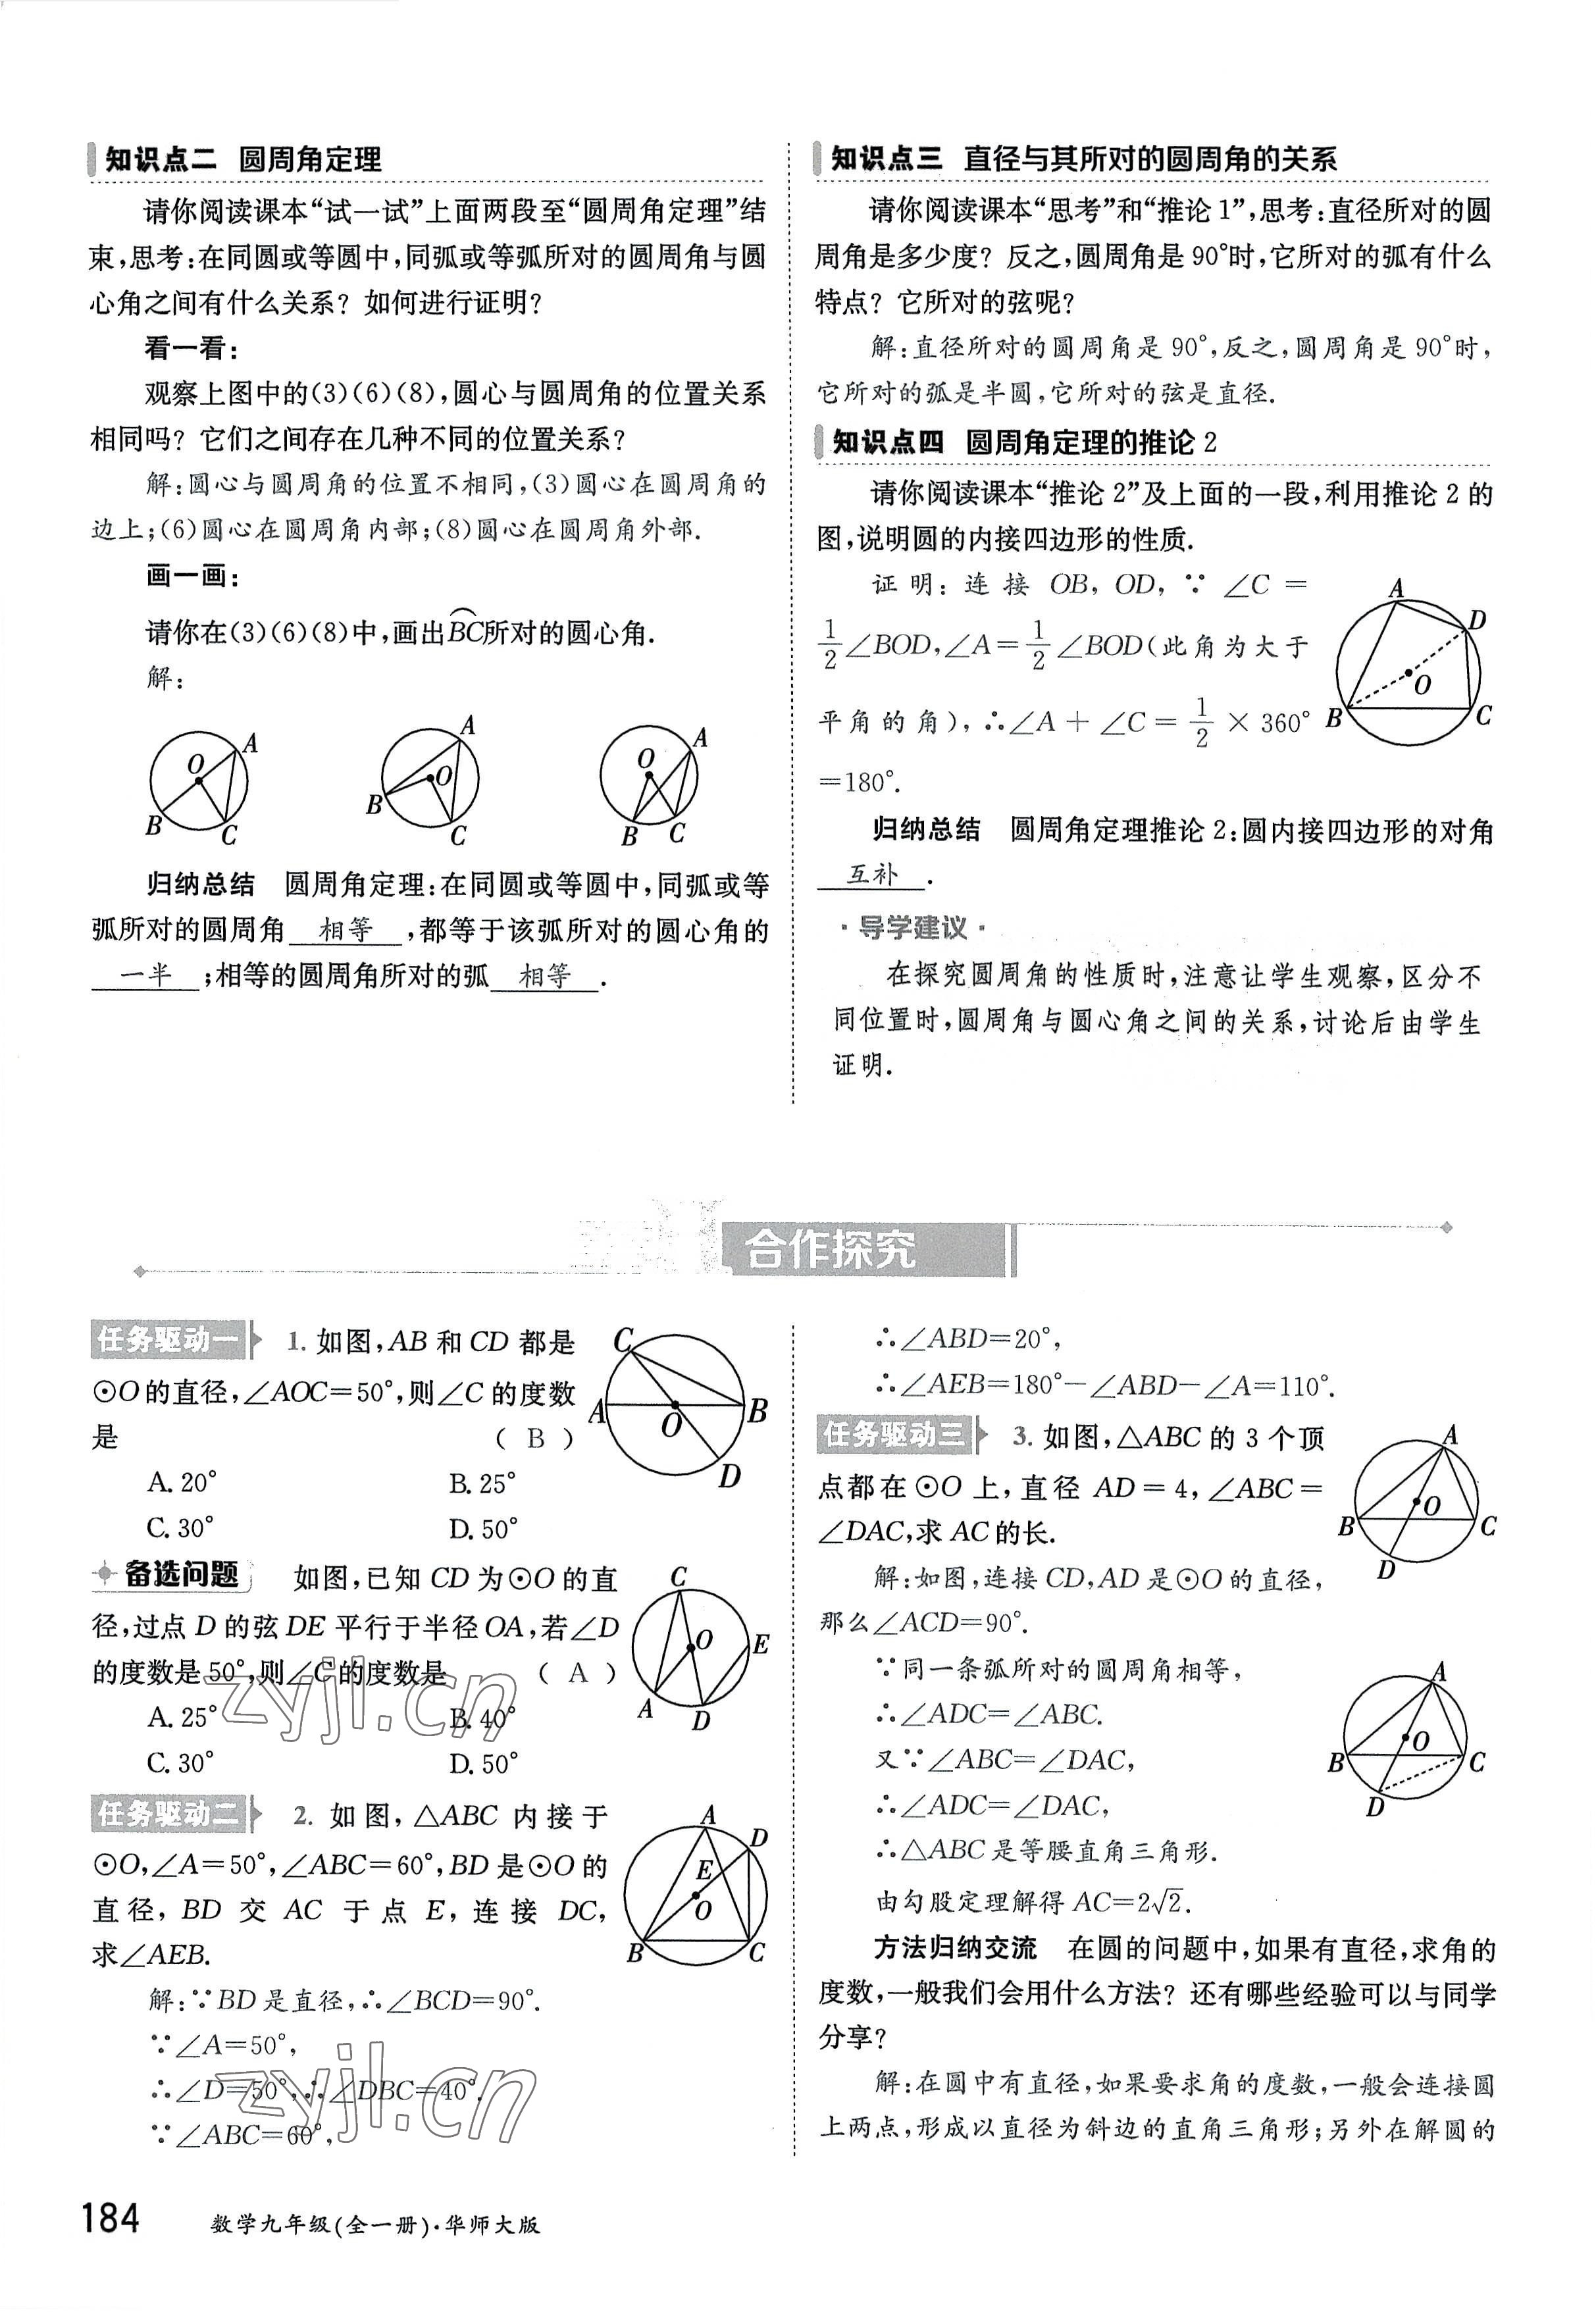 知识点二 圆周角定理
请你阅读课本“试一试”上面两段至“圆周角定理”结
束,思考:在同圆或等圆中,同弧或等弧所对的圆周角与圆
心角之间有什么关系?如何进行证明?
看一看:
观察上图中的(3)(6)(8),圆心与圆周角的位置关系
相同吗?它们之间存在几种不同的位置关系?
解:圆心与圆周角的位置不相同,(3)圆心在圆周角的
边上;(6)圆心在圆周角内部;(8)圆心在圆周角外部.
画一画:
请你在(3)(6)(8)中,画出BC所对的圆心角.
解:
A O B C
A O B C
A O B C
归纳总结 圆周角定理:在同圆或等圆中,同弧或等
弧所对的圆周角 相等 ,都等于该弧所对的圆心角的
一半 ;相等的圆周角所对的弧 相等 .
知识点三 直径与其所对的圆周角的关系
请你阅读课本“思考”和“推论1”,思考:直径所对的圆
周角是多少度?反之,圆周角是90°时,它所对的弧有什么
特点?它所对的弦呢?
解:直径所对的圆周角是90°,反之,圆周角是90°时,
它所对的弧是半圆,它所对的弦是直径.
知识点四 圆周角定理的推论2
请你阅读课本“推论2”及上面的一段,利用推论2的
图,说明圆的内接四边形的性质.
证明:连接 OB, OD, ∵ ∠C =
1/2∠BOD,∠A=1/2∠BOD(此角为大于
平角的角),∴∠A+∠C=1/2×360°
=180°.
A D O B C
归纳总结 圆周角定理推论2:圆内接四边形的对角
互补 .
·导学建议·
在探究圆周角的性质时,注意让学生观察,区分不
同位置时,圆周角与圆心角之间的关系,讨论后由学生
证明.
合作探究
任务驱动一 1.如图,AB和CD都是
⊙O的直径,∠AOC=50°,则∠C的度数
是 ( B )
A.20° B.25°
C.30° D.50°
C A O B D
备选问题 如图,已知CD为⊙O的直
径,过点D的弦DE平行于半径OA,若∠D
的度数是50°,则∠C的度数是 ( A )
A.25° B.40°
C.30° D.50°
C O E A D
zyjl.cn
任务驱动二 2.如图,△ABC内接于
⊙O,∠A=50°,∠ABC=60°,BD是⊙O的
直径,BD交AC于点E,连接DC,
求∠AEB.
A D E O B C
解:∵BD是直径,∴∠BCD=90°.
∵∠A=50°,
∴∠D=50°,∴∠DBC=40°.
∵∠ABC=60°,
zyjl.cn
∴∠ABD=20°,
∴∠AEB=180°-∠ABD-∠A=110°.
任务驱动三 3.如图,△ABC的3个顶
点都在⊙O上,直径AD=4,∠ABC=
∠DAC,求AC的长.
A O B C D
解:如图,连接CD,AD是⊙O的直径,
那么∠ACD=90°.
∵同一条弧所对的圆周角相等,
∴∠ADC=∠ABC.
又∵∠ABC=∠DAC,
∴∠ADC=∠DAC,
∴△ABC是等腰直角三角形.
由勾股定理解得AC=2√2.
A O B C D
方法归纳交流 在圆的问题中,如果有直径,求角的
度数,一般我们会用什么方法?还有哪些经验可以与同学
分享?
解:在圆中有直径,如果要求角的度数,一般会连接圆
上两点,形成以直径为斜边的直角三角形;另外在解圆的
184 数学九年级(全一册)·华师大版